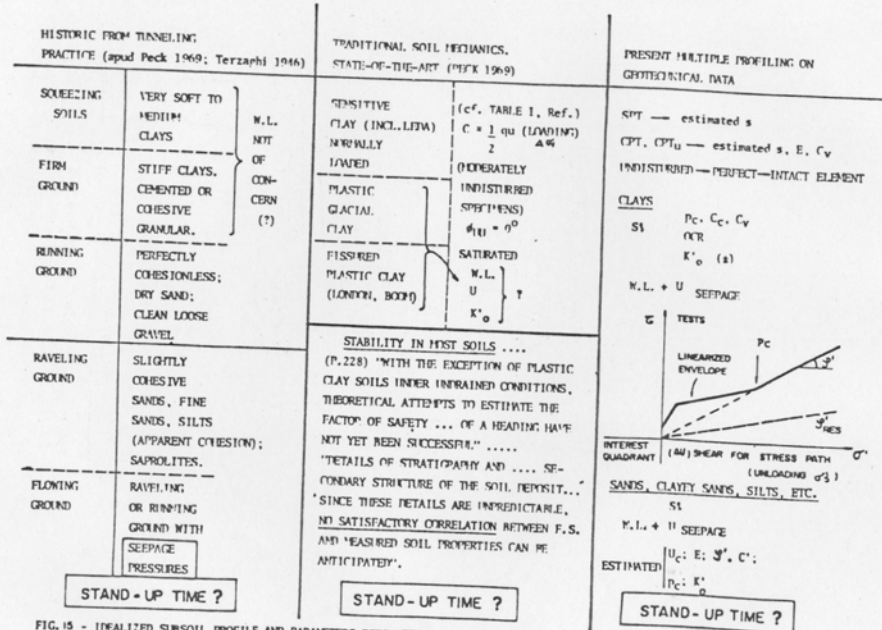 HISTORIC FROM TUNNELING
PRACTICE (apud Peck 1969; Terzaghi 1946)
SQUEEZING
SOILS
VERY SOFT TO
MEDIUM
CLAYS
FIRM
GROUND
STIFF CLAYS.
CEMENTED OR
COHESIVE
GRANULAR.
W.L.
NOT
OF
CON-
CERN
(?)
RUNNING
GROUND
PERFECTLY
COHESIONLESS;
DRY SAND;
CLEAN LOOSE
GRAVEL
RAVELING
GROUND
SLIGHTLY
COHESIVE
SANDS, FINE
SANDS, SILTS
(APPARENT COHESION);
SAPROLITES.
FLOWING
GROUND
RAVELING
OR RUNNING
GROUND WITH
SEEPAGE
PRESSURES
STAND-UP TIME ?
TRADITIONAL SOIL MECHANICS.
STATE-OF-THE-ART (PECK 1969)
SENSITIVE
CLAY (INCL.LEDA)
NORMALLY
LOADED
PLASTIC
GLACIAL
CLAY
FISSURED
PLASTIC CLAY
(LONDON, BOOM)
(cf. TABLE I, Ref.)
C = 1/2 qu (LOADING)
(MODERATELY
UNDISTURBED
SPECIMENS)
SATURATED
W.L.
U
K'o
?
STABILITY IN MOST SOILS ....
(P.228) "WITH THE EXCEPTION OF PLASTIC
CLAY SOILS UNDER UNDRAINED CONDITIONS,
THEORETICAL ATTEMPTS TO ESTIMATE THE
FACTOR OF SAFETY ... OF A HEADING HAVE
NOT YET BEEN SUCCESSFUL" .....
"DETAILS OF STRATIGRAPHY AND .... SE-
CONDARY STRUCTURE OF THE SOIL DEPOSIT..."
"SINCE THESE DETAILS ARE UNPREDICTABLE,
NO SATISFACTORY CORRELATION BETWEEN F.S.
AND MEASURED SOIL PROPERTIES CAN BE
ANTICIPATED".
STAND-UP TIME ?
PRESENT MULTIPLE PROFILING ON
GEOTECHNICAL DATA
SPT → estimated s
CPT, CPTu → estimated s, E, Cv
UNDISTURBED → PERFECT → INTACT ELEMENT
CLAYS
St
Pc, Cc, Cv
OCR
K'o (z)
W.L. + U SEEPAGE
τ
TESTS
Pc
LINEARIZED
ENVELOPE
φ'
φ'RES
σ'
INTEREST
QUADRANT
(ΔU) SHEAR FOR STRESS PATH
(UNLOADING
SANDS, CLAYEY SANDS, SILTS, ETC.
St
W.L. + U SEEPAGE
ESTIMATED
Uc; E; φ', C';
Pc; K'o
STAND-UP TIME ?
FIG. 15 - IDEALIZED SUBSOIL PROFILE AND PARAMETERS